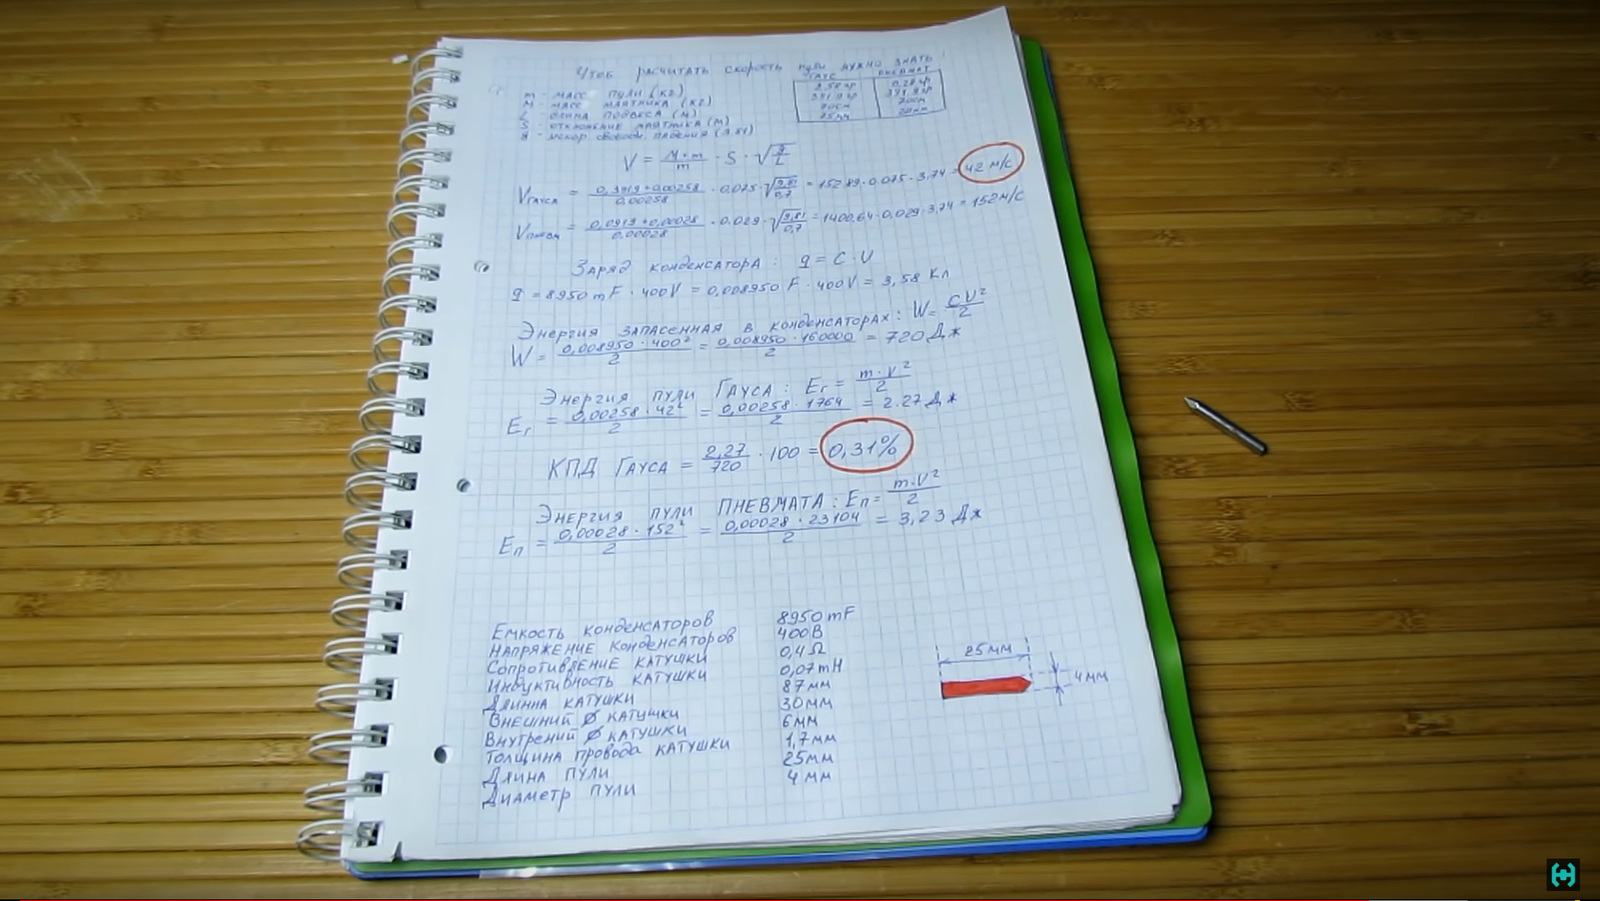 Чтоб расчитать скорость пули нужно знать!
Гаус Пневмат
m - масс пули (кг) 2.58 гр 0.28 гр
M - масс маятника (кг) 391.9 гр 391.9 гр
L - длина подвеса (м) 70см 70см
S - отклонение маятника (м) 75мм 29мм
g - ускор. свободн. падения (9.81)
V = M+m/m · S · √g/L
Vгауса = 0,3919+0,00258/0,00258 · 0.075 · √9,81/0,7 = 152.89 · 0.075 · 3,74 = 42 м/с
Vпневм = 0,0919+0,00028/0,00028 · 0.029 · √9,81/0,7 = 1400,64 · 0,029 · 3,74 = 152 м/с
Заряд конденсатора: q = C · U
q = 8950 mF · 400V = 0,008950 F · 400V = 3,58 Кл
Энергия запасенная в конденсаторах: W = CU²/2
W = 0,008950 · 400²/2 = 0,008950 · 160000/2 = 720 Дж
Энергия пули Гауса: Eг = m·V²/2
Eг = 0,00258 · 42²/2 = 0,00258 · 1764/2 = 2.27 Дж
КПД Гауса = 2,27/720 · 100 = 0,31%
Энергия пули ПНЕВМАТА: Eп = m·V²/2
Eп = 0,00028 · 152²/2 = 0,00028 · 23104/2 = 3,23 Дж
Емкость конденсаторов 8950 mF
Напряжение конденсаторов 400В
Сопротивление катушки 0,4 Ω
Индуктивность катушки 0,07 mH
Длинна катушки 87 мм
Внешний Ø катушки 30 мм
Внутрений Ø катушки 6 мм
Толщина провода катушки 1,7 мм
Длина пули 25 мм
Диаметр пули 4 мм
25 мм
4 мм